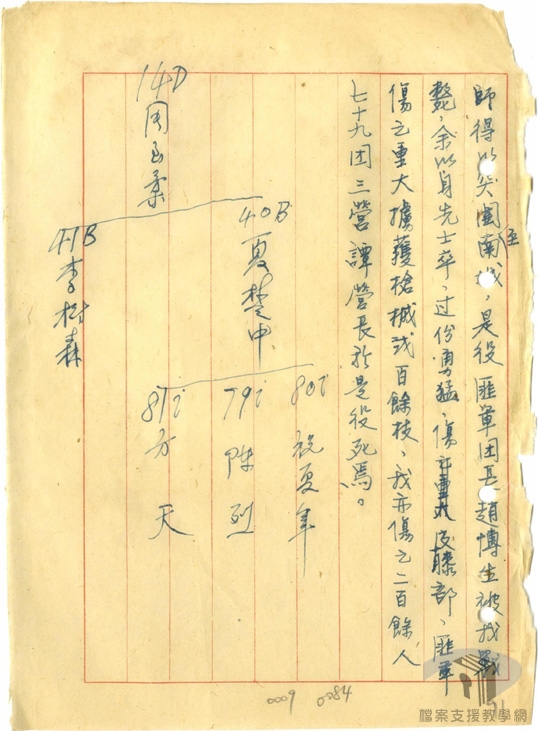 師得以突圍至南城，是役匪軍团長趙博生被我斃
斃，余以身先士卒，过份勇猛，傷及膝部，匪軍
傷亡重大擄獲槍械弍百餘枝，我亦傷亡二百餘人
七十九团三營譚營長於是役死焉。
14D 周至柔
40B 夏楚中
41B 李樹森
80i 祝夏年
79i 陳烈
81i 方天
0009 0284
檔案支援教學網